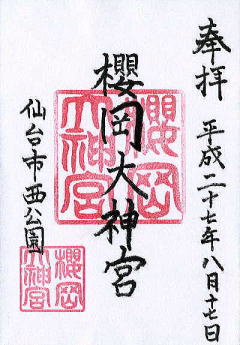 奉拝 平成二十七年八月十七日
櫻岡大神宮
仙台市西公園
櫻岡大神宮
櫻岡大神宮